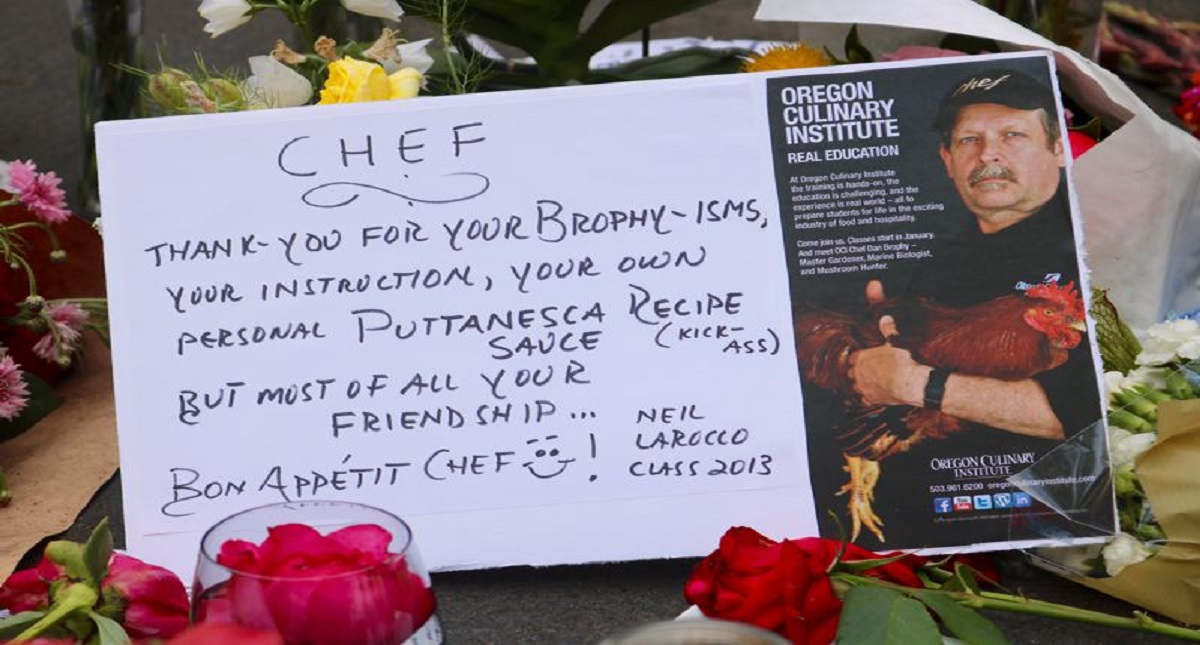 CHEF
THANK-YOU FOR YOUR BROPHY-ISMS,
YOUR INSTRUCTION, YOUR OWN
PERSONAL PUTTANESCA RECIPE
SAUCE (KICK-
ASS)
BUT MOST OF ALL YOUR
FRIENDSHIP...
BON APPÉTIT CHEF !
NEIL
LAROCCO
CLASS 2013
OREGON
CULINARY
INSTITUTE
REAL EDUCATION
At Oregon Culinary Institute
the training is hands-on, the
education is challenging, and the
experience is real world – all to
prepare students for life in the exciting
industry of food and hospitality.
Come join us. Classes start in January.
And meet OCI Chef Dan Brophy –
Master Gardener, Marine Biologist,
and Mushroom Hunter.
chef
OREGON CULINARY
INSTITUTE
503.961.6200 oregonculinaryinstitute.com